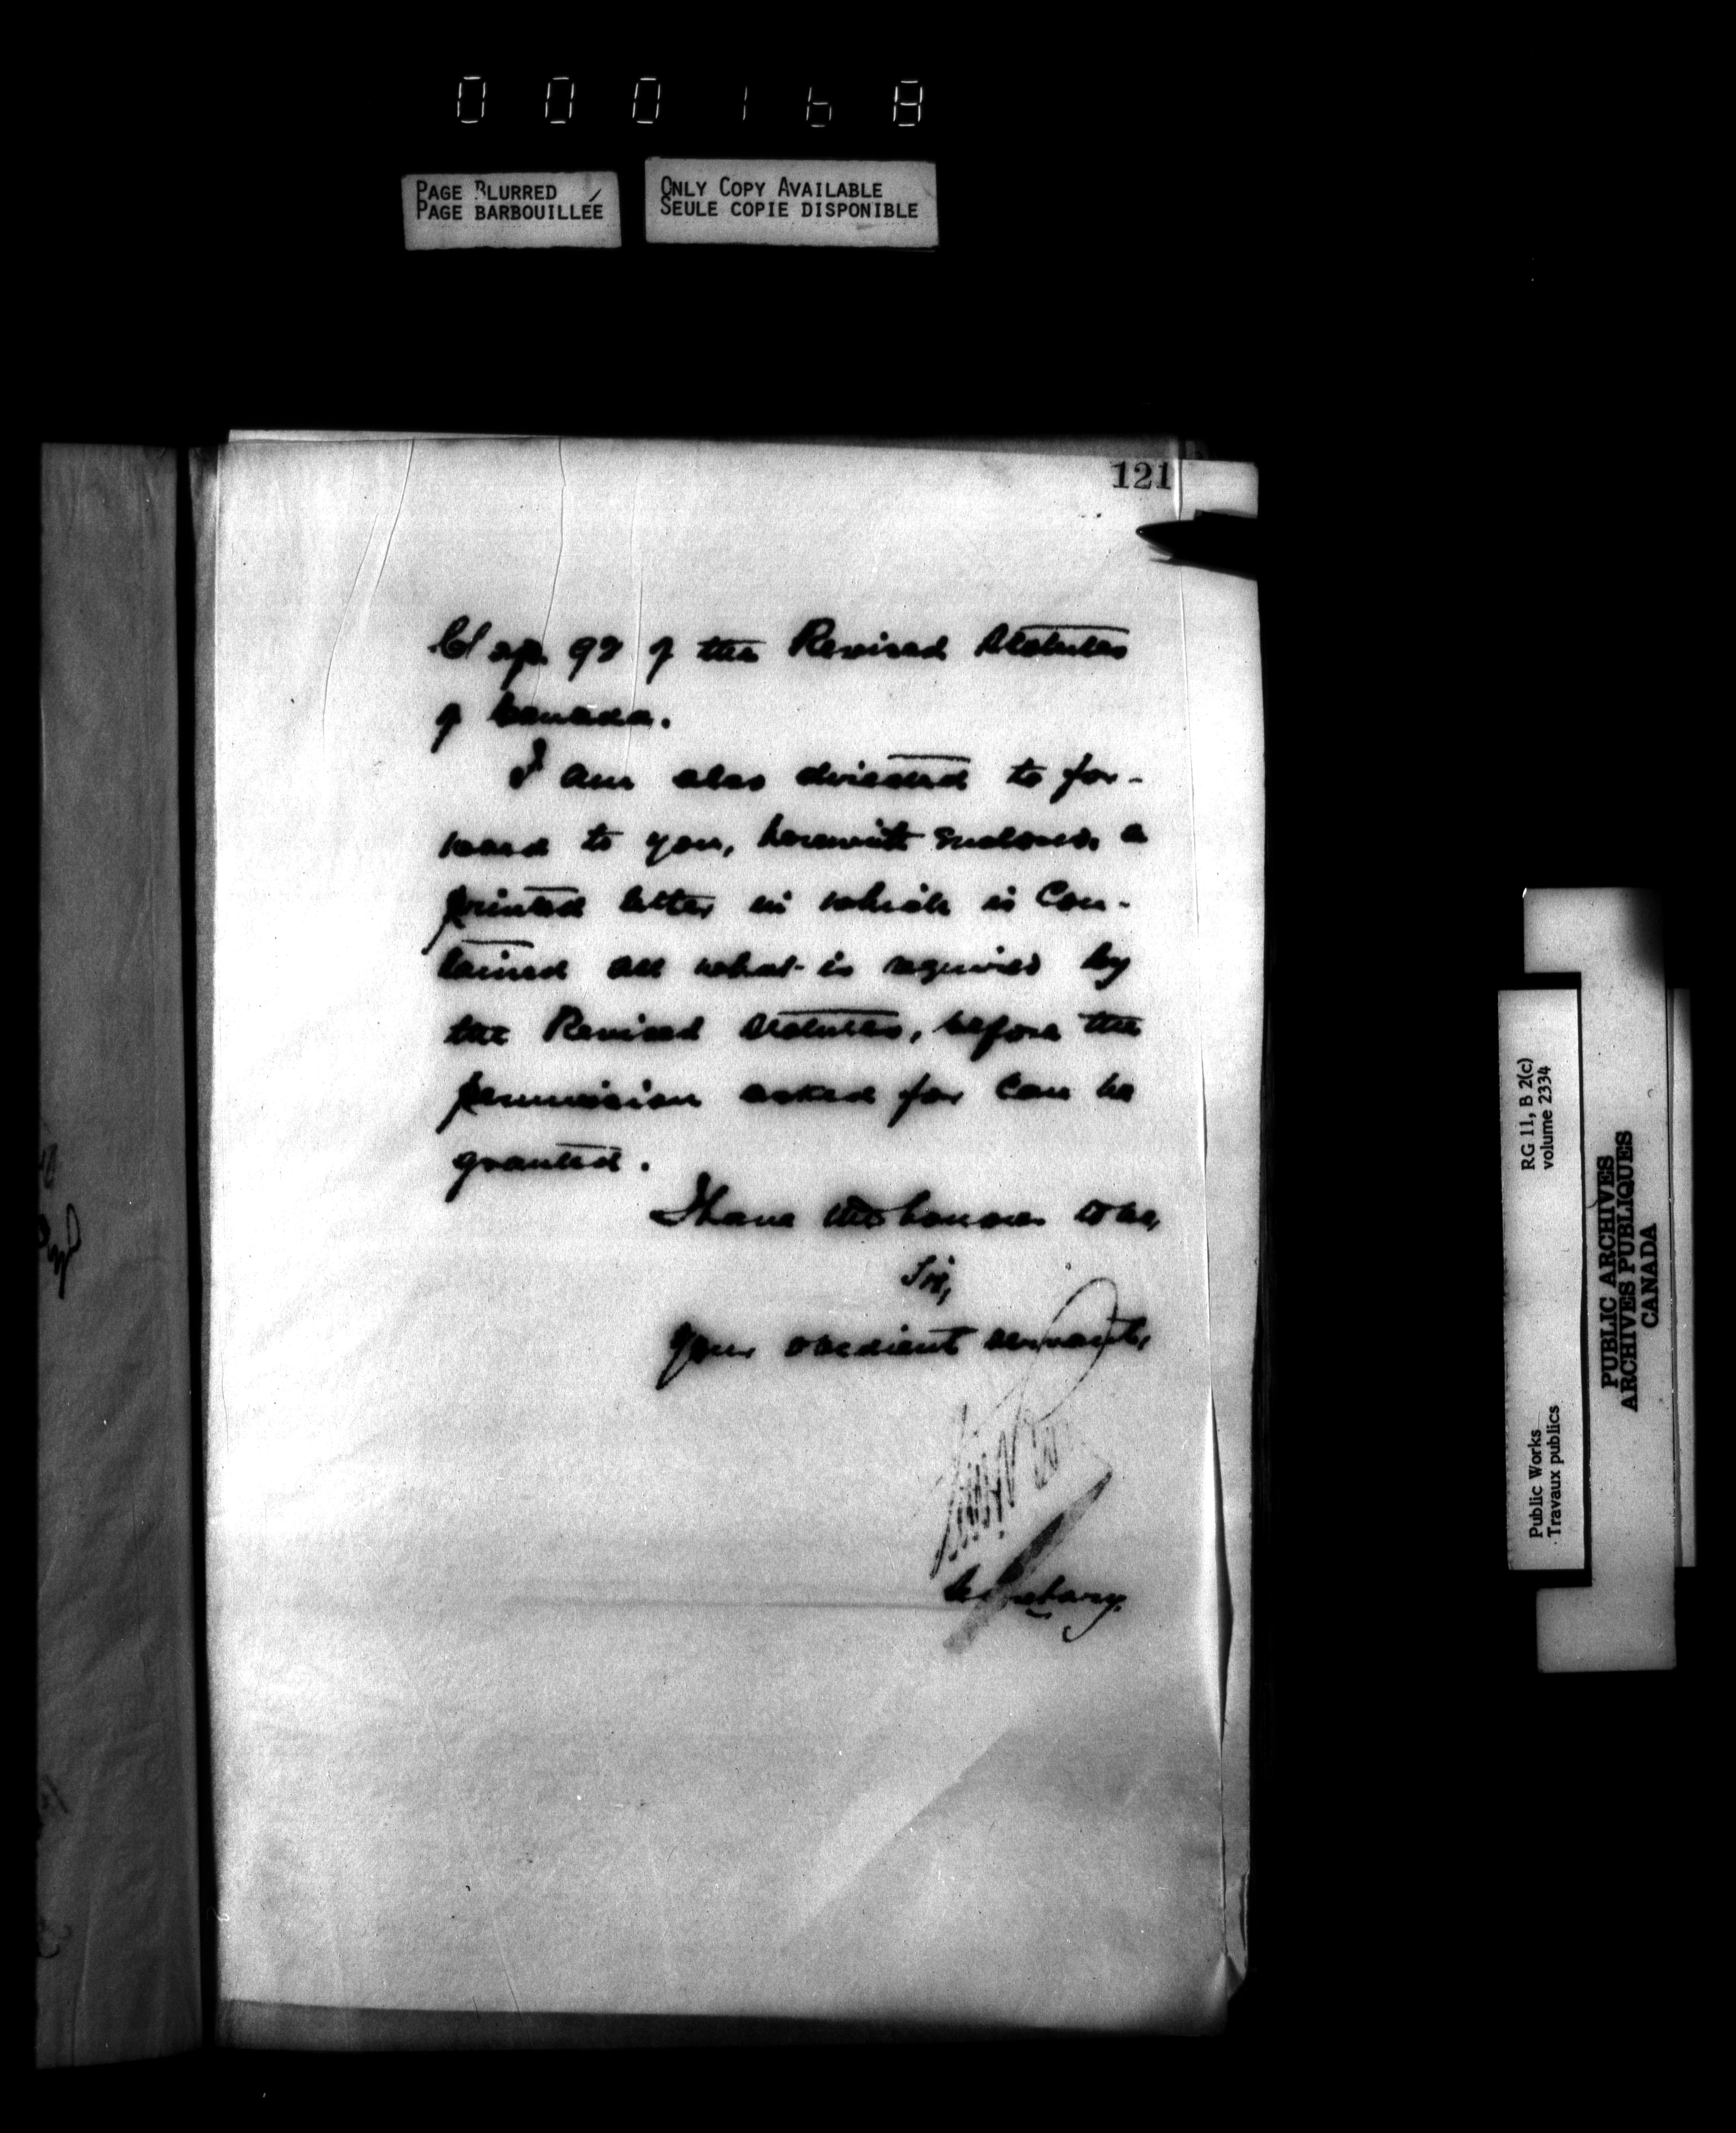 000168
PAGE BLURRED
PAGE BARBOUILLÉE
ONLY COPY AVAILABLE
SEULE COPIE DISPONIBLE
121
Chap. 92 of the Revised Statutes
of Canada.
I am also directed to for-
ward to you, herewith enclosed, a
printed letter in which is con-
tained all what is required by
the Revised Statutes, before the
permission asked for can be
granted.
I have the honour to be,
Sir,
Your obedient servant,
Secretary.
RG 11, B 2(c)
volume 2334
Public Works
Travaux publics
PUBLIC ARCHIVES
ARCHIVES PUBLIQUES
CANADA